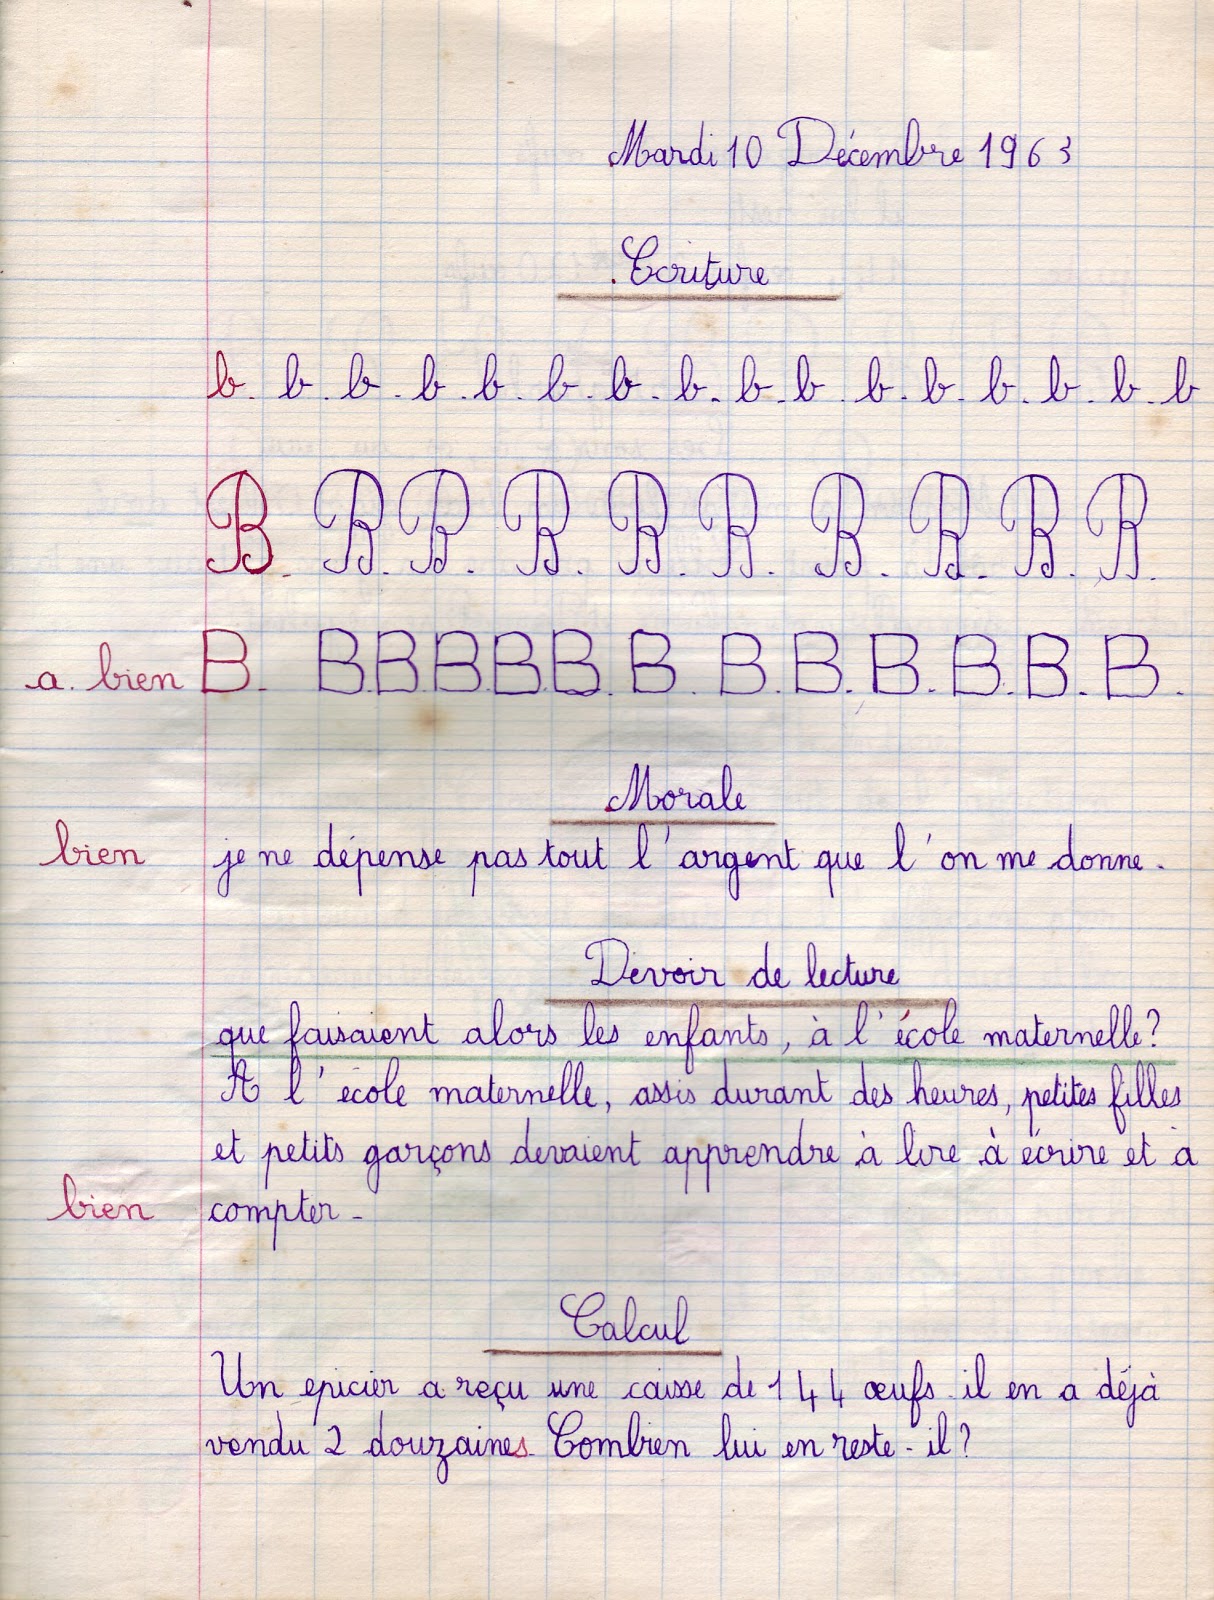 Mardi 10 Décembre 1963
Ecriture
b. b. b. b. b. b. b. b. b. b. b. b. b. b. b. b
B. B. B. B. B. B. B. B. B. B.
a. bien B. B. B. B. B. B. B. B. B. B. B. B. B.
Morale
bien je ne dépense pas tout l'argent que l'on me donne.
Devoir de lecture
que faisaient alors les enfants, à l'école maternelle?
A l'école maternelle, assis durant des heures, petites filles
et petits garçons devaient apprendre à lire à écrire et à
bien compter.
Calcul
Un epicier a reçu une caisse de 144 œufs. il en a déjà
vendu 2 douzaines. Combien lui en reste-il?